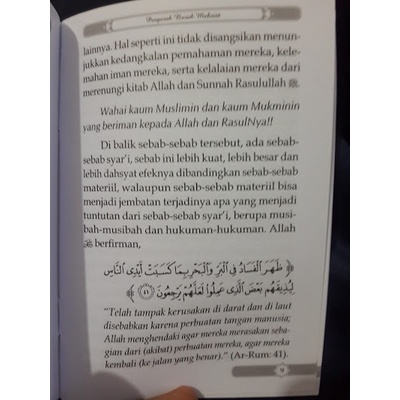 Pengaruh Buruk Maksiat
lainnya. Hal seperti ini tidak disangsikan menun-
jukkan kedangkalan pemahaman mereka, kele-
mahan iman mereka, serta kelalaian mereka dari
merenungi kitab Allah dan Sunnah Rasulullah ﷺ.
Wahai kaum Muslimin dan kaum Mukminin
yang beriman kepada Allah dan RasulNya!!
Di balik sebab-sebab tersebut, ada sebab-
sebab syar'i, sebab ini lebih kuat, lebih besar dan
lebih dahsyat efeknya dibandingkan sebab-sebab
materiil, walaupun sebab-sebab materiil bisa
menjadi jembatan terjadinya apa yang menjadi
tuntutan dari sebab-sebab syar'i, berupa musi-
bah-musibah dan hukuman-hukuman. Allah
ﷻ berfirman,
﴿ ظَهَرَ ٱلْفَسَادُ فِى ٱلْبَرِّ وَٱلْبَحْرِ بِمَا كَسَبَتْ أَيْدِى ٱلنَّاسِ
لِيُذِيقَهُم بَعْضَ ٱلَّذِى عَمِلُوا۟ لَعَلَّهُمْ يَرْجِعُونَ ٤١ ﴾
"Telah tampak kerusakan di darat dan di laut
disebabkan karena perbuatan tangan manusia;
Allah menghendaki agar mereka merasakan seba-
gian dari (akibat) perbuatan mereka, agar mereka
kembali (ke jalan yang benar)." (Ar-Rum: 41).
9